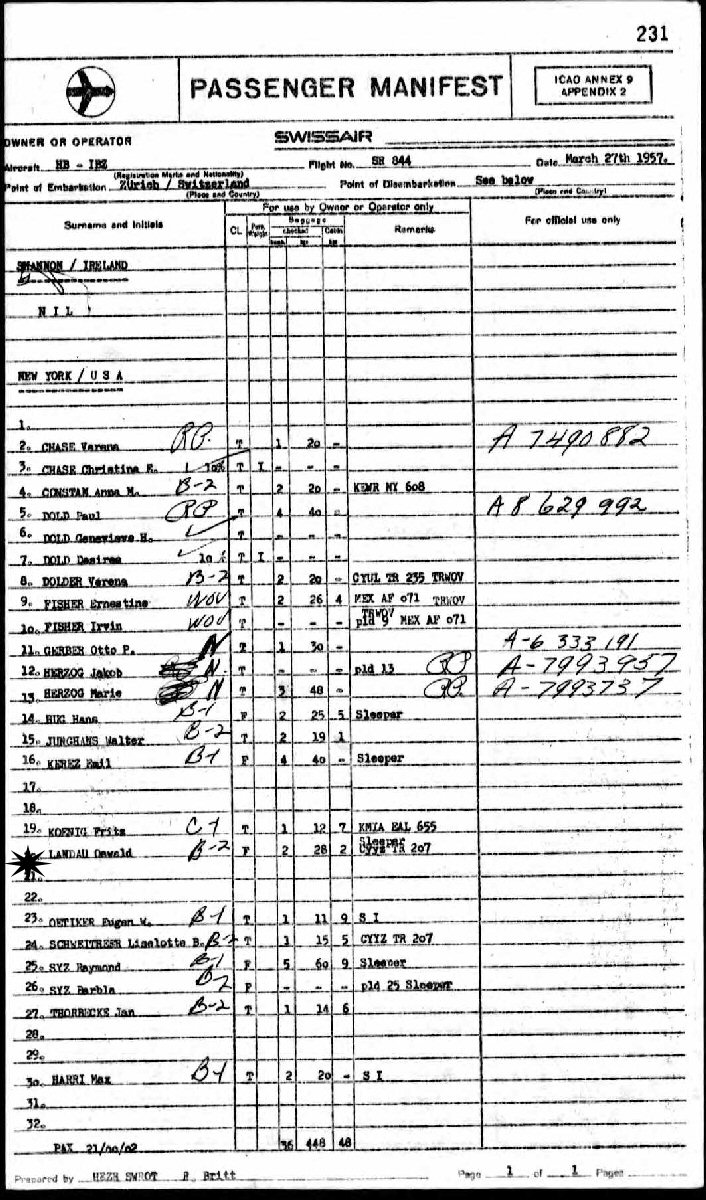 231
PASSENGER MANIFEST
ICAO ANNEX 9
APPENDIX 2
OWNER OR OPERATOR SWISSAIR
Aircraft HB - IBZ Flight No. SR 844 Date March 27th 1957.
(Registration Marks and Nationality)
Point of Embarkation Zürich / Switzerland Point of Disembarkation See below
(Place and Country) (Place and Country)
For use by Owner or Operator only
Surname and Initials CL Baggage checked Cabin kgs Remarks For official use only
SHANNON / IRELAND
N I L
NEW YORK / U S A
1.
2. CHASE Verena RP. T 1 20 - A 7490882
3. CHASE Christina E. 10% T I - - -
4. CONSTAM Anna M. B-2 T 2 20 - KEWR NY 608
5. DOLD Paul RP T 4 40 - A 8 629 992
6. DOLD Genevieve H. T - - -
7. DOLD Desiree 10 % T I - - -
8. DOLDER Verena B-2 T 2 20 - CYUL TR 235 TRWOV
9. FISHER Ernestine WOV T 2 26 4 MEX AF 071 TRWOV
10. FISHER Irwin WOV T - - - pld 9 MEX AF 071 TRWOV
11. GERBER Otto P. N T 1 30 - A-6 333 191
12. HERZOG Jakob N. T - - - pld 13 RP A-7993957
13. HERZOG Marie N T 3 48 - RP. A-7993737
14. HUG Hans B-1 F 2 25 5 Sleeper
15. JUNGHANS Walter B-2 T 2 19 1
16. KEREZ Emil B-1 F 4 40 - Sleeper
17.
18.
19. KOENIG Fritz C-1 T 1 12 7 KMIA EAL 655
LANDAU Oswald B-2 F 2 28 2 Sleeper CYYZ TR 207
21.
22.
23. OETIKER Eugen W. B-1 T 1 11 9 S I
24. SCHWEITRESR Liselotte B. B-2 T 1 15 5 CYYZ TR 207
25. SYZ Raymond B-1 F 5 60 9 Sleeper
26. SYZ Barbla B-2 F - - - pld 25 Sleeper
27. THORBECKE Jan B-2 T 1 14 6
28.
29.
30. HARRI Max B-1 T 2 20 - S I
31.
32.
PAX 21/00/02 36 448 48
Prepared by HEZH SWROT F. Britt Page 1 of 1 Pages